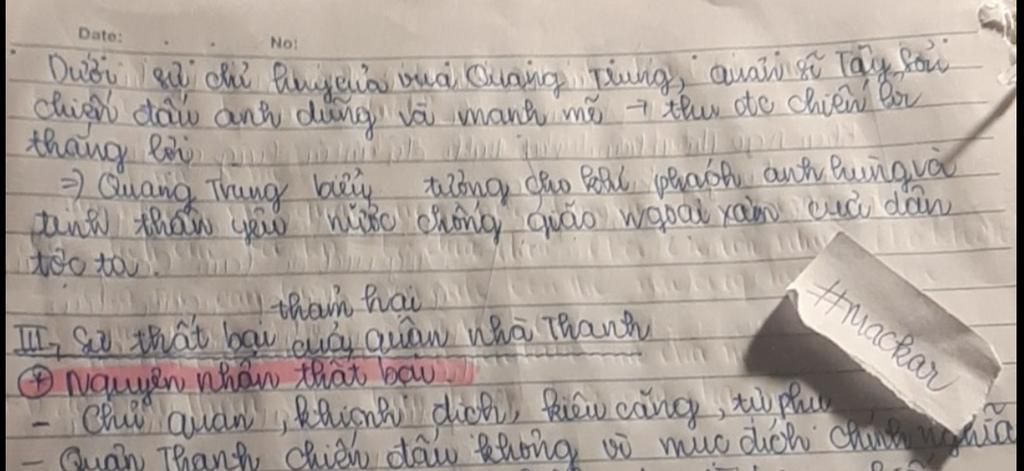 Date: No:
Dưới sự chỉ huy của vua Quang Trung, quân sĩ Tây Sơn
chiến đấu anh dũng và mạnh mẽ → thu đc chiến lợi
thắng lợi
=> Quang Trung biểu tượng cho khí phách anh hùng và
tinh thần yêu nước chống giặc ngoại xâm của dân
tộc ta.
thảm hại
III, Sự thất bại của quân nhà Thanh
+ Nguyên nhân thất bại.
- Chủ quan, khinh địch, kiêu căng, tự phụ
- Quân Thanh chiến đấu không vì mục đích chính nghĩa
#mackar